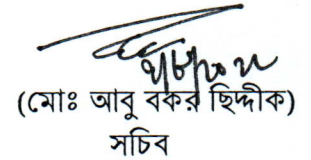 (মোঃ আবু বকর ছিদ্দীক)
সচিব